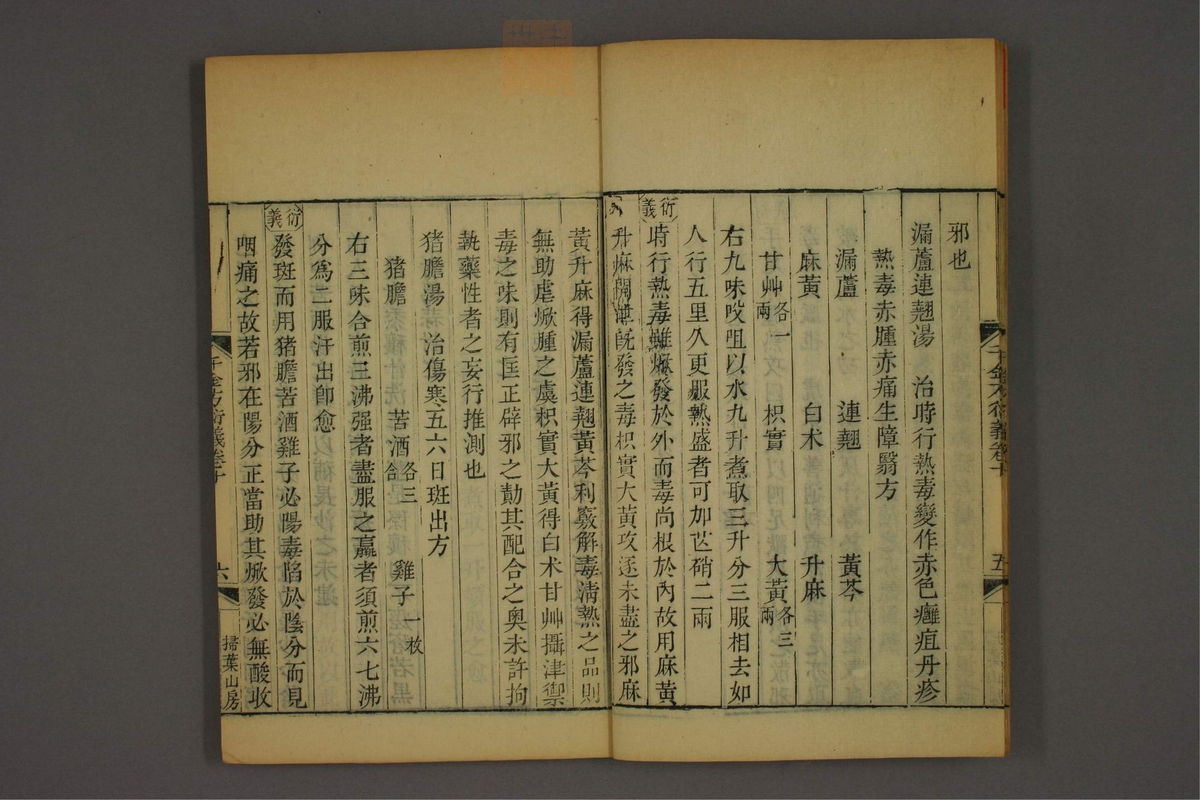 邪也
漏蘆連翹湯　治時行熱毒變作赤色癰疽丹疹
熱毒赤腫赤痛生障翳方
漏蘆　連翹　黃芩
麻黃　白术　升麻
甘艸各一兩　枳實　大黃各三兩
右九味㕮咀以水九升煮取三升分三服相去如
人行五里久更服熱盛者可加芒硝二兩
衍義
時行熱毒雖焮發於外而毒尚根於內故用麻黃
升麻開既發之毒枳實大黃攻逐未盡之邪麻
千金方衍義卷十　五
黃升麻得漏蘆連翹黃芩利竅解毒清熱之品則
無助虐焮腫之虞枳實大黃得白术甘艸攝津禦
毒之味則有匡正辟邪之勣其配合之奧未許拘
執藥性者之妄行推測也
猪膽湯　治傷寒五六日班出方
猪膽　苦酒各三合　雞子一枚
右三味合煎三沸强者盡服之羸者須煎六七沸
分爲二服汗出卽愈
衍義
發斑而用猪膽苦酒雞子必陽毒陷於陰分而見
咽痛之故若邪在陽分正當助其焮發必無酸收
千金方衍義卷十　六　掃葉山房